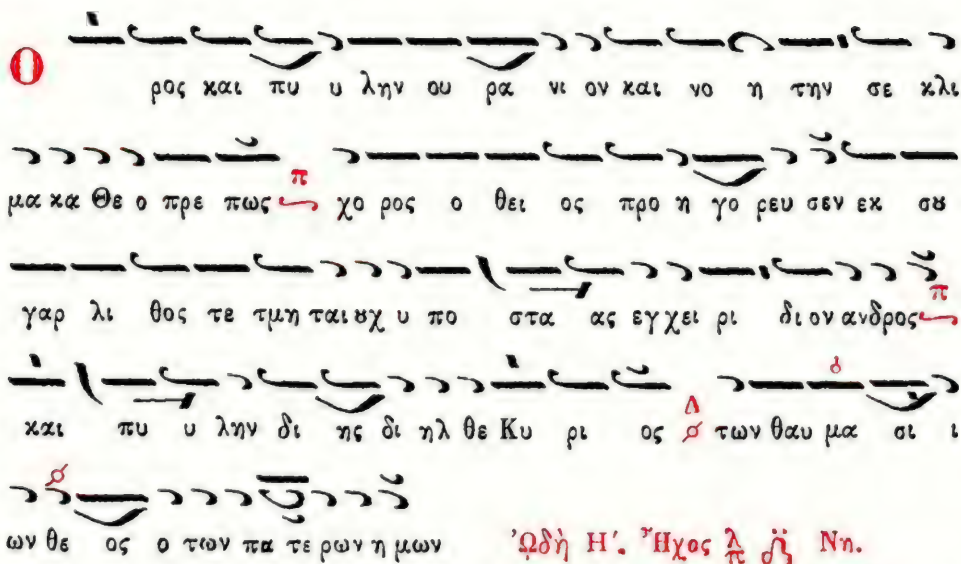 Ο ρος και πυ υ λην ου ρα νι ον και νο η την σε κλι
μα κα Θε ο πρε πως χο ρος ο θει ος προ η γο ρευ σεν εκ σȣ
γαρ λι θος τε τμη ται ȣχ υ πο στα ας εγ χει ρι δι ον ανδρος
και πυ υ λην δι ης δι ηλ θε Κυ ρι ος των θαυ μα σι ι
ων θε ος ο των πα τε ρων η μων Ὠδὴ Η΄. Ἦχος λ π Νη.